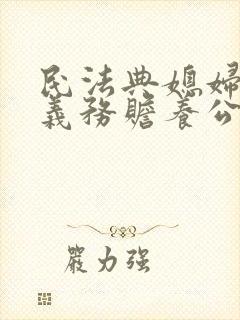 民法典媳婦
義務贍養公
嚴力强